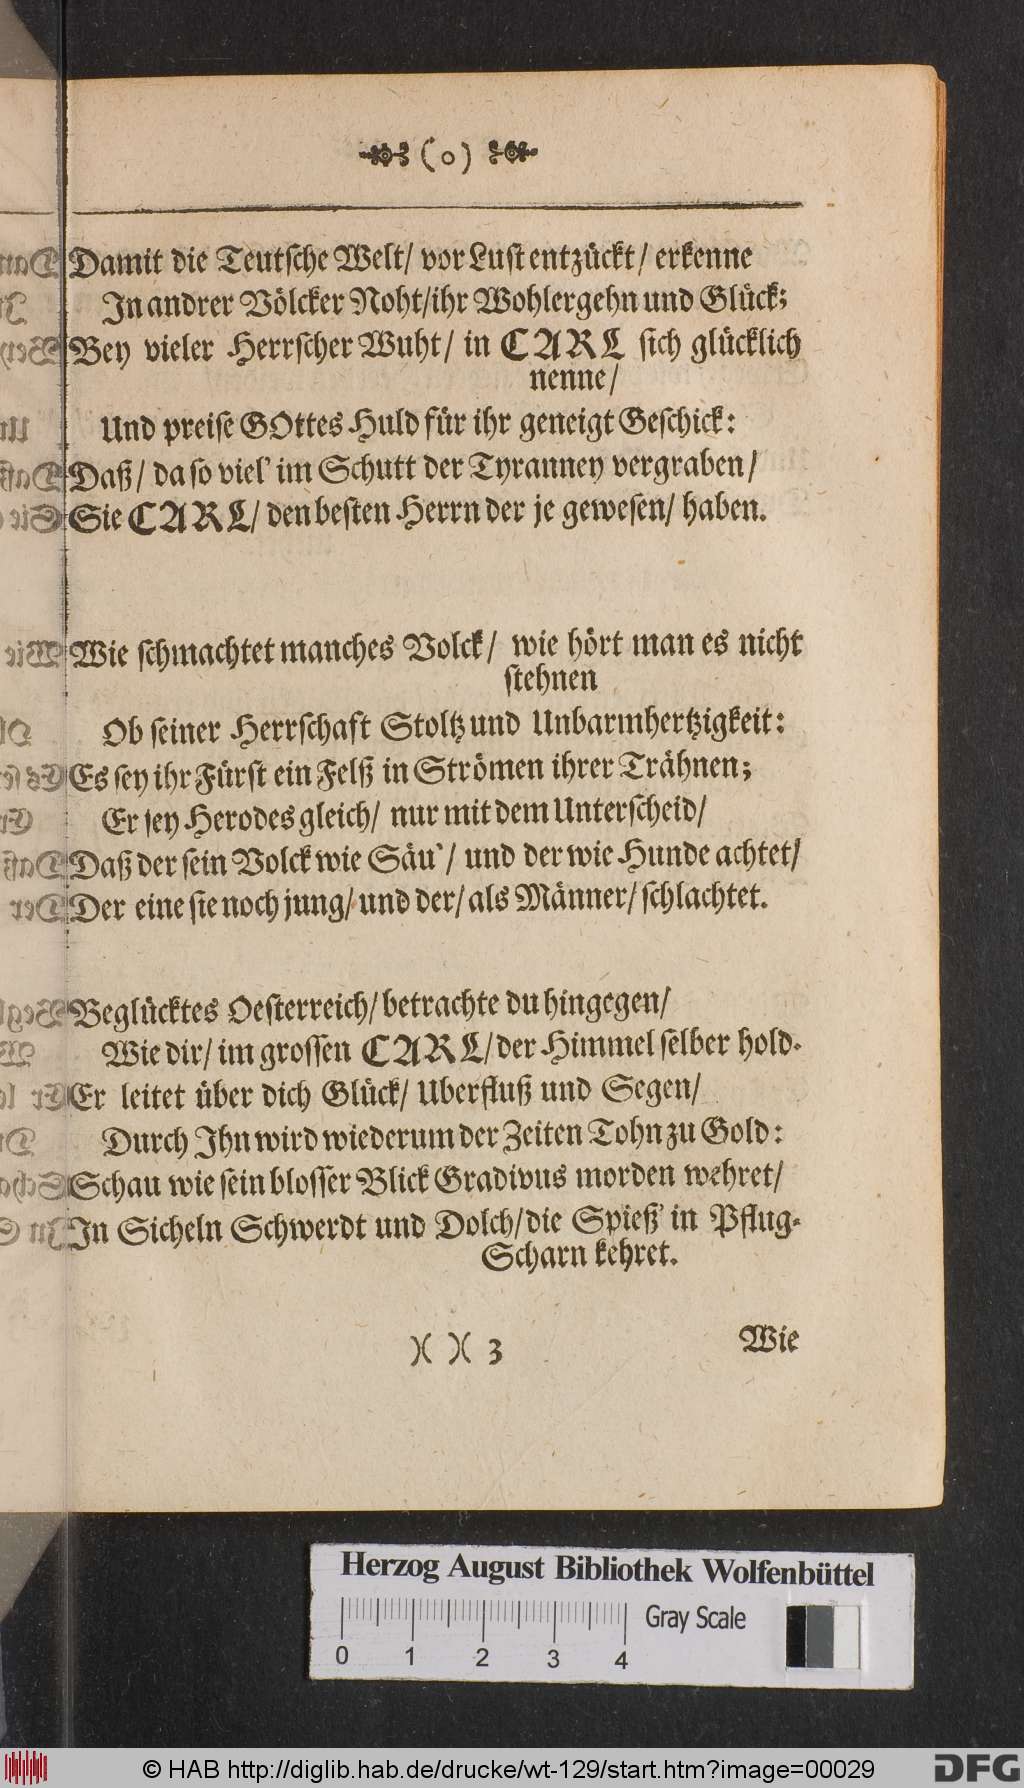 (o)
Damit die Teutsche Welt/ vor Lust entzückt/ erkenne
In andrer Völcker Noht/ihr Wohlergehn und Glück;
Bey vieler Herrscher Wuht/ in CARL sich glücklich
nenne/
Und preise GOttes Huld für ihr geneigt Geschick:
Daß/ da so viel' im Schutt der Tyranney vergraben/
Sie CARL/ den besten Herrn der je gewesen/ haben.
Wie schmachtet manches Volck/ wie hört man es nicht
stehnen
Ob seiner Herrschaft Stoltz und Unbarmhertzigkeit:
Es sey ihr Fürst ein Felß in Strömen ihrer Trähnen;
Er sey Herodes gleich/ nur mit dem Unterscheid/
Daß der sein Volck wie Säu'/ und der wie Hunde achtet/
Der eine sie noch jung/ und der/ als Männer/ schlachtet.
Beglücktes Oesterreich/ betrachte du hingegen/
Wie dir/ im grossen CARL/ der Himmel selber hold.
Er leitet über dich Glück/ Uberfluß und Segen/
Durch Ihn wird wiederum der Zeiten Tohn zu Gold:
Schau wie sein blosser Blick Gradivus morden wehret/
In Sicheln Schwerdt und Dolch/ die Spieß' in Pflug-
Scharn kehret.
)( )( 3
Wie
Herzog August Bibliothek Wolfenbüttel
Gray Scale
0 1 2 3 4
© HAB http://diglib.hab.de/drucke/wt-129/start.htm?image=00029
DFG